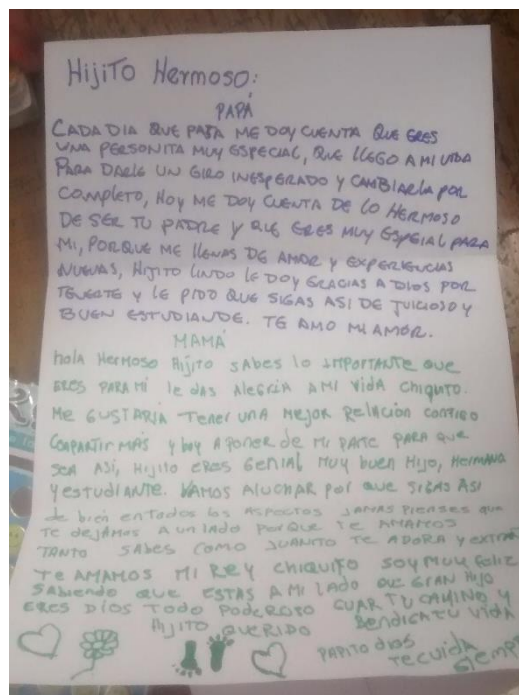 HijiTo Hermoso:
PAPÁ
CADA DIA QUE PASA ME DOY CUENTA QUE ERES
UNA PERSONITA MUY ESPECIAL, QUE LLEGO A MI VIDA
PARA DARLE UN GIRO INESPERADO Y CAMBIARLA POR
COMPLETO, HOY ME DOY CUENTA DE LO HERMOSO
DE SER TU PADRE Y QUE ERES MUY ESPECIAL PARA
MI, PORQUE ME LLENAS DE AMOR Y EXPERIENCIAS
NUEVAS, HIJITO LINDO LE DOY GRACIAS A DIOS POR
TENERTE Y LE PIDO QUE SIGAS ASI DE JUICIOSO Y
BUEN ESTUDIANDE. TE AMO MI AMOR.
MAMÁ
hola Hermoso Hijito sabes lo IMPORTANTE que
ERES PARA MI le das Alegria A MI vida chiquito.
Me GUSTARIA Tener una Mejor Relacion contigo
Compartir MAS y boy A poner de Mi parte para que
sea Asi, Hijito eres Genial Muy buen Hijo, Hermano
y estudiante. Vamos Aluchar por que sigas Asi
de bien en Todos los Aspectos JAMAS pienses que
Te dejamos A un lado porque Te AMAMOS
TANTO sabes como JUANITO Te Adora y extraña
Te AMAMOS Mi Rey chiquito soy Muy feliz
sabiendo que estas A mi lado que GRAN Hijo
eres Dios Todo poderoso GUAR TU CAMINO y
Bendiga TU vida
Hijito querido
PAPITO dios
Te cuida
siempre